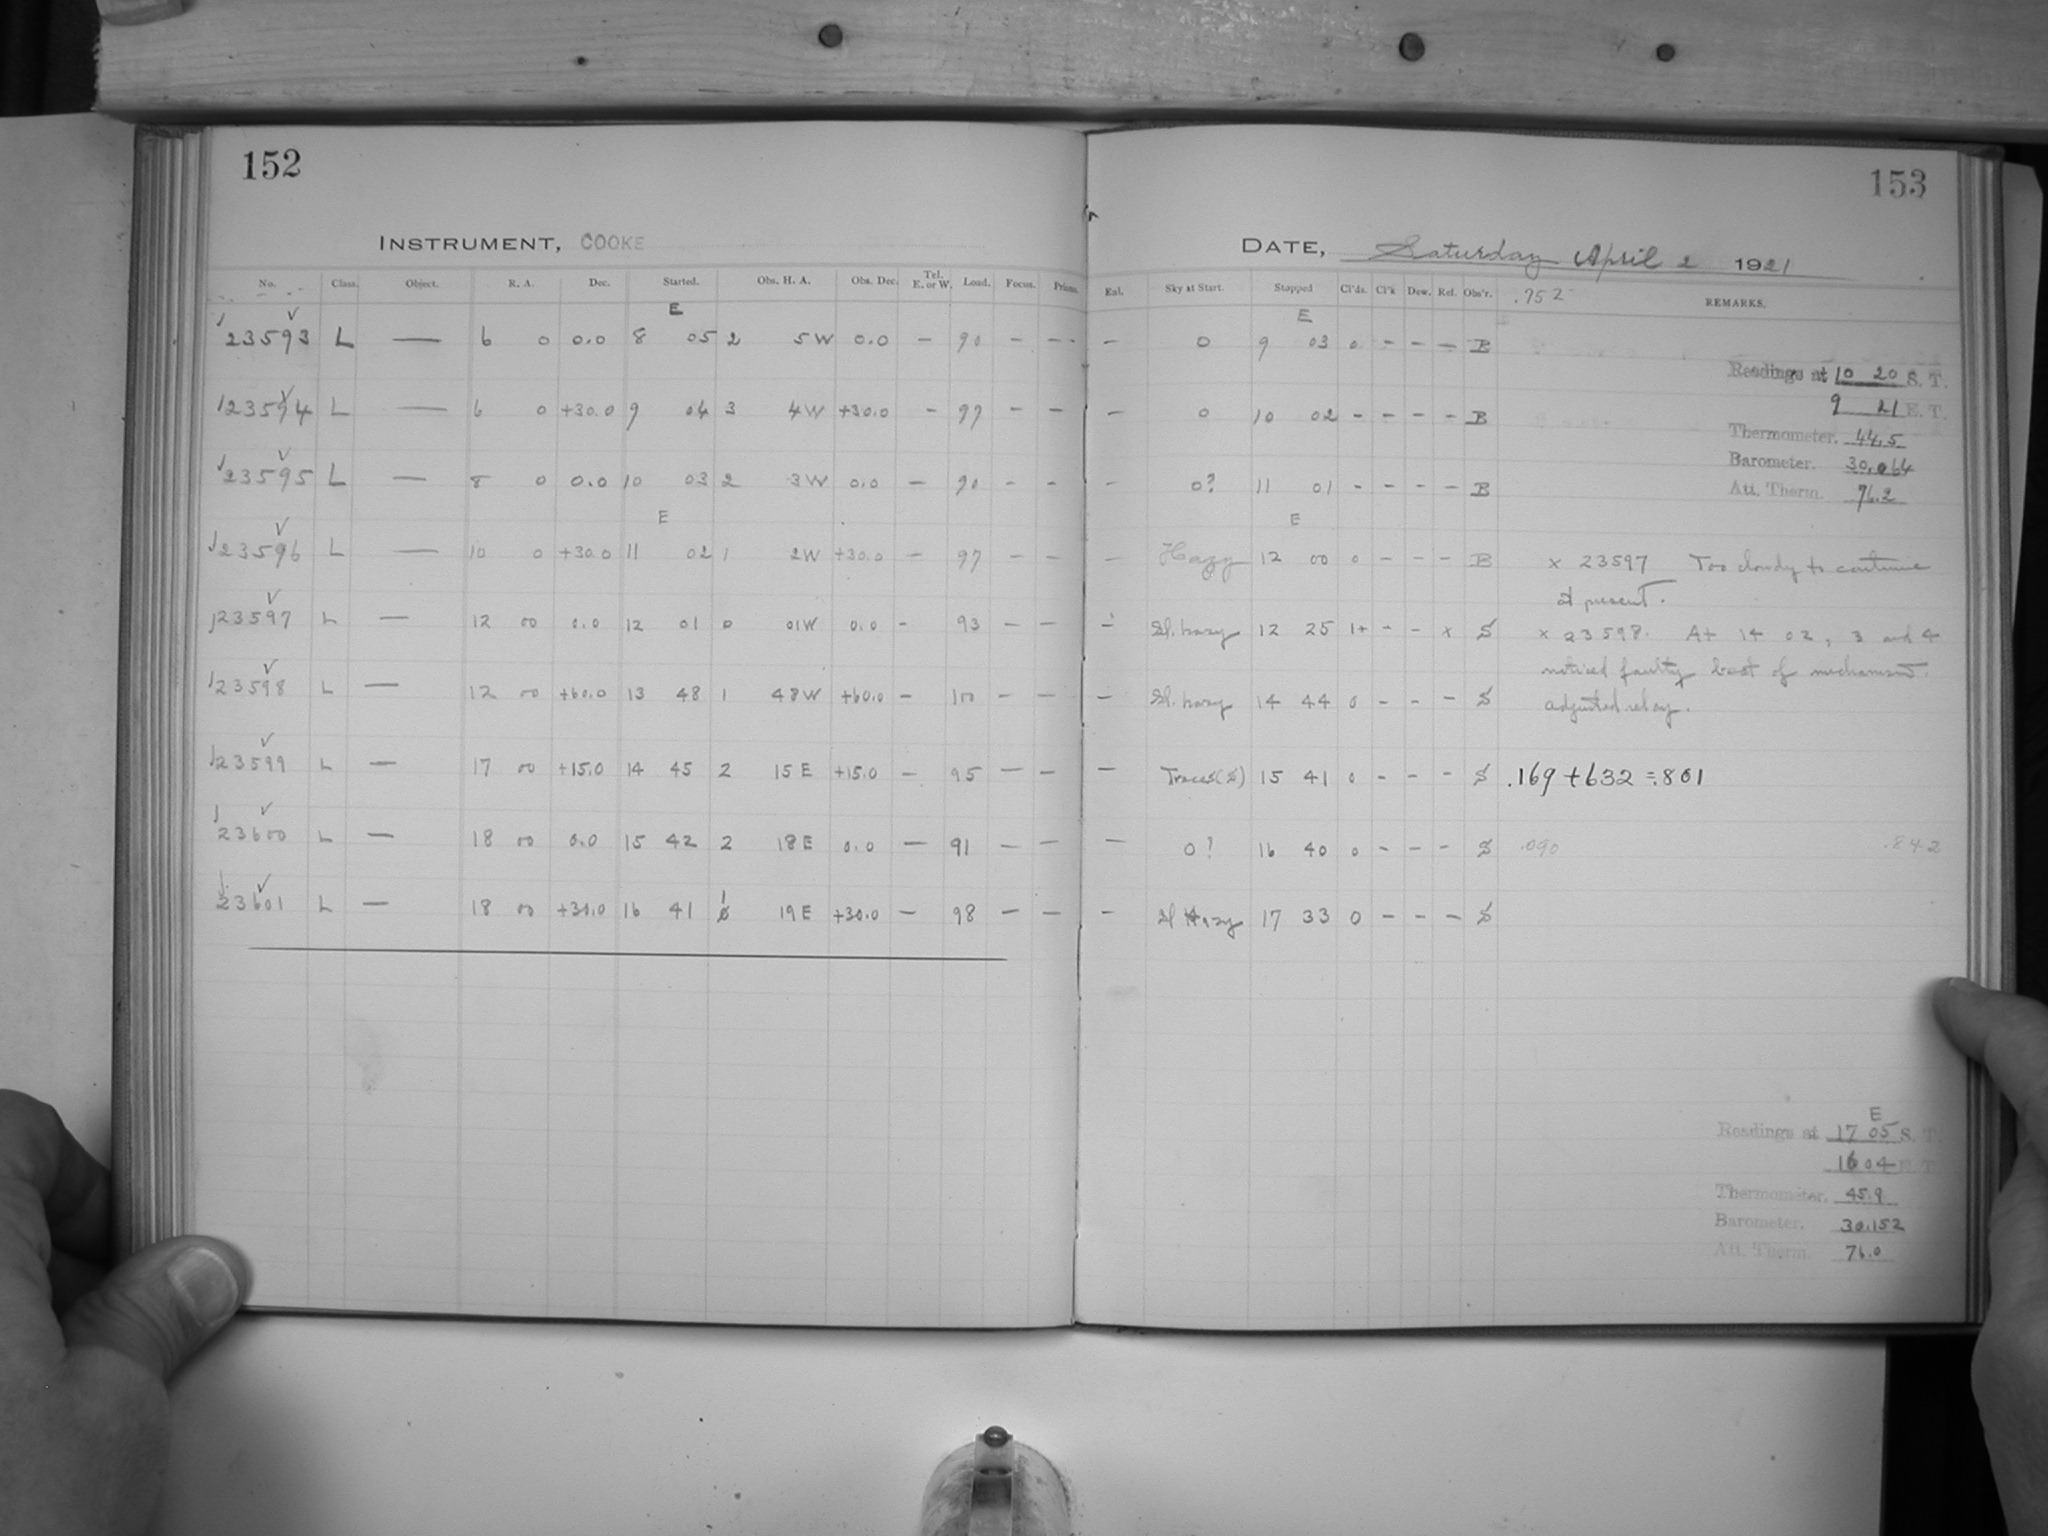 152
INSTRUMENT, COOKE
No. Class. Object. R. A. Dec. Started. Obs. H. A. Obs. Dec. Tel. E. or W. Load. Focus. Prisms.
E
23593 L — 6 0 0.0 8 05 2 5 W 0.0 — 90 — —
23594 L — 6 0 +30.0 9 04 3 4 W +30.0 — 97 — —
23595 L — 8 0 0.0 10 03 2 3 W 0.0 — 90 — —
E
23596 L — 10 0 +30.0 11 02 1 2 W +30.0 — 97 — —
23597 L — 12 00 0.0 12 01 0 01 W 0.0 — 93 — —
23598 L — 12 00 +60.0 13 48 1 48 W +60.0 — 100 — —
23599 L — 17 00 +15.0 14 45 2 15 E +15.0 — 95 — —
23600 L — 18 00 0.0 15 42 2 18 E 0.0 — 91 — —
23601 L — 18 00 +30.0 16 41 1 19 E +30.0 — 98 — —
153
DATE, Saturday April 2 1921
Eal. Sky at Start. Stopped Cl'ds. Cl'k Dew. Rel. Obs'r. .752 REMARKS.
E
— 0 9 03 0 — — — B
Readings at 10 20 S. T.
9 21 E. T.
— 0 10 02 — — — — B
Thermometer. 44.5
Barometer. 30.064
— 0? 11 01 — — — — B
Att. Therm. 76.2
E
— Hazy 12 00 0 — — — B × 23597 Too cloudy to continue
at present.
— Sl. hazy 12 25 1+ — — × S × 23598. At 14 02, 3 and 4
noticed faulty beat of mechanism.
— Sl. hazy 14 44 0 — — — S adjusted relay.
— Traces(S) 15 41 0 — — — S .169 + 632 = .801
— 0? 16 40 0 — — — S .090 .842
— Sl Hazy 17 33 0 — — — S
E
Readings at 17 05 S. T.
16 04 E. T.
Thermometer. 45.9
Barometer. 30.152
Att. Therm. 76.0